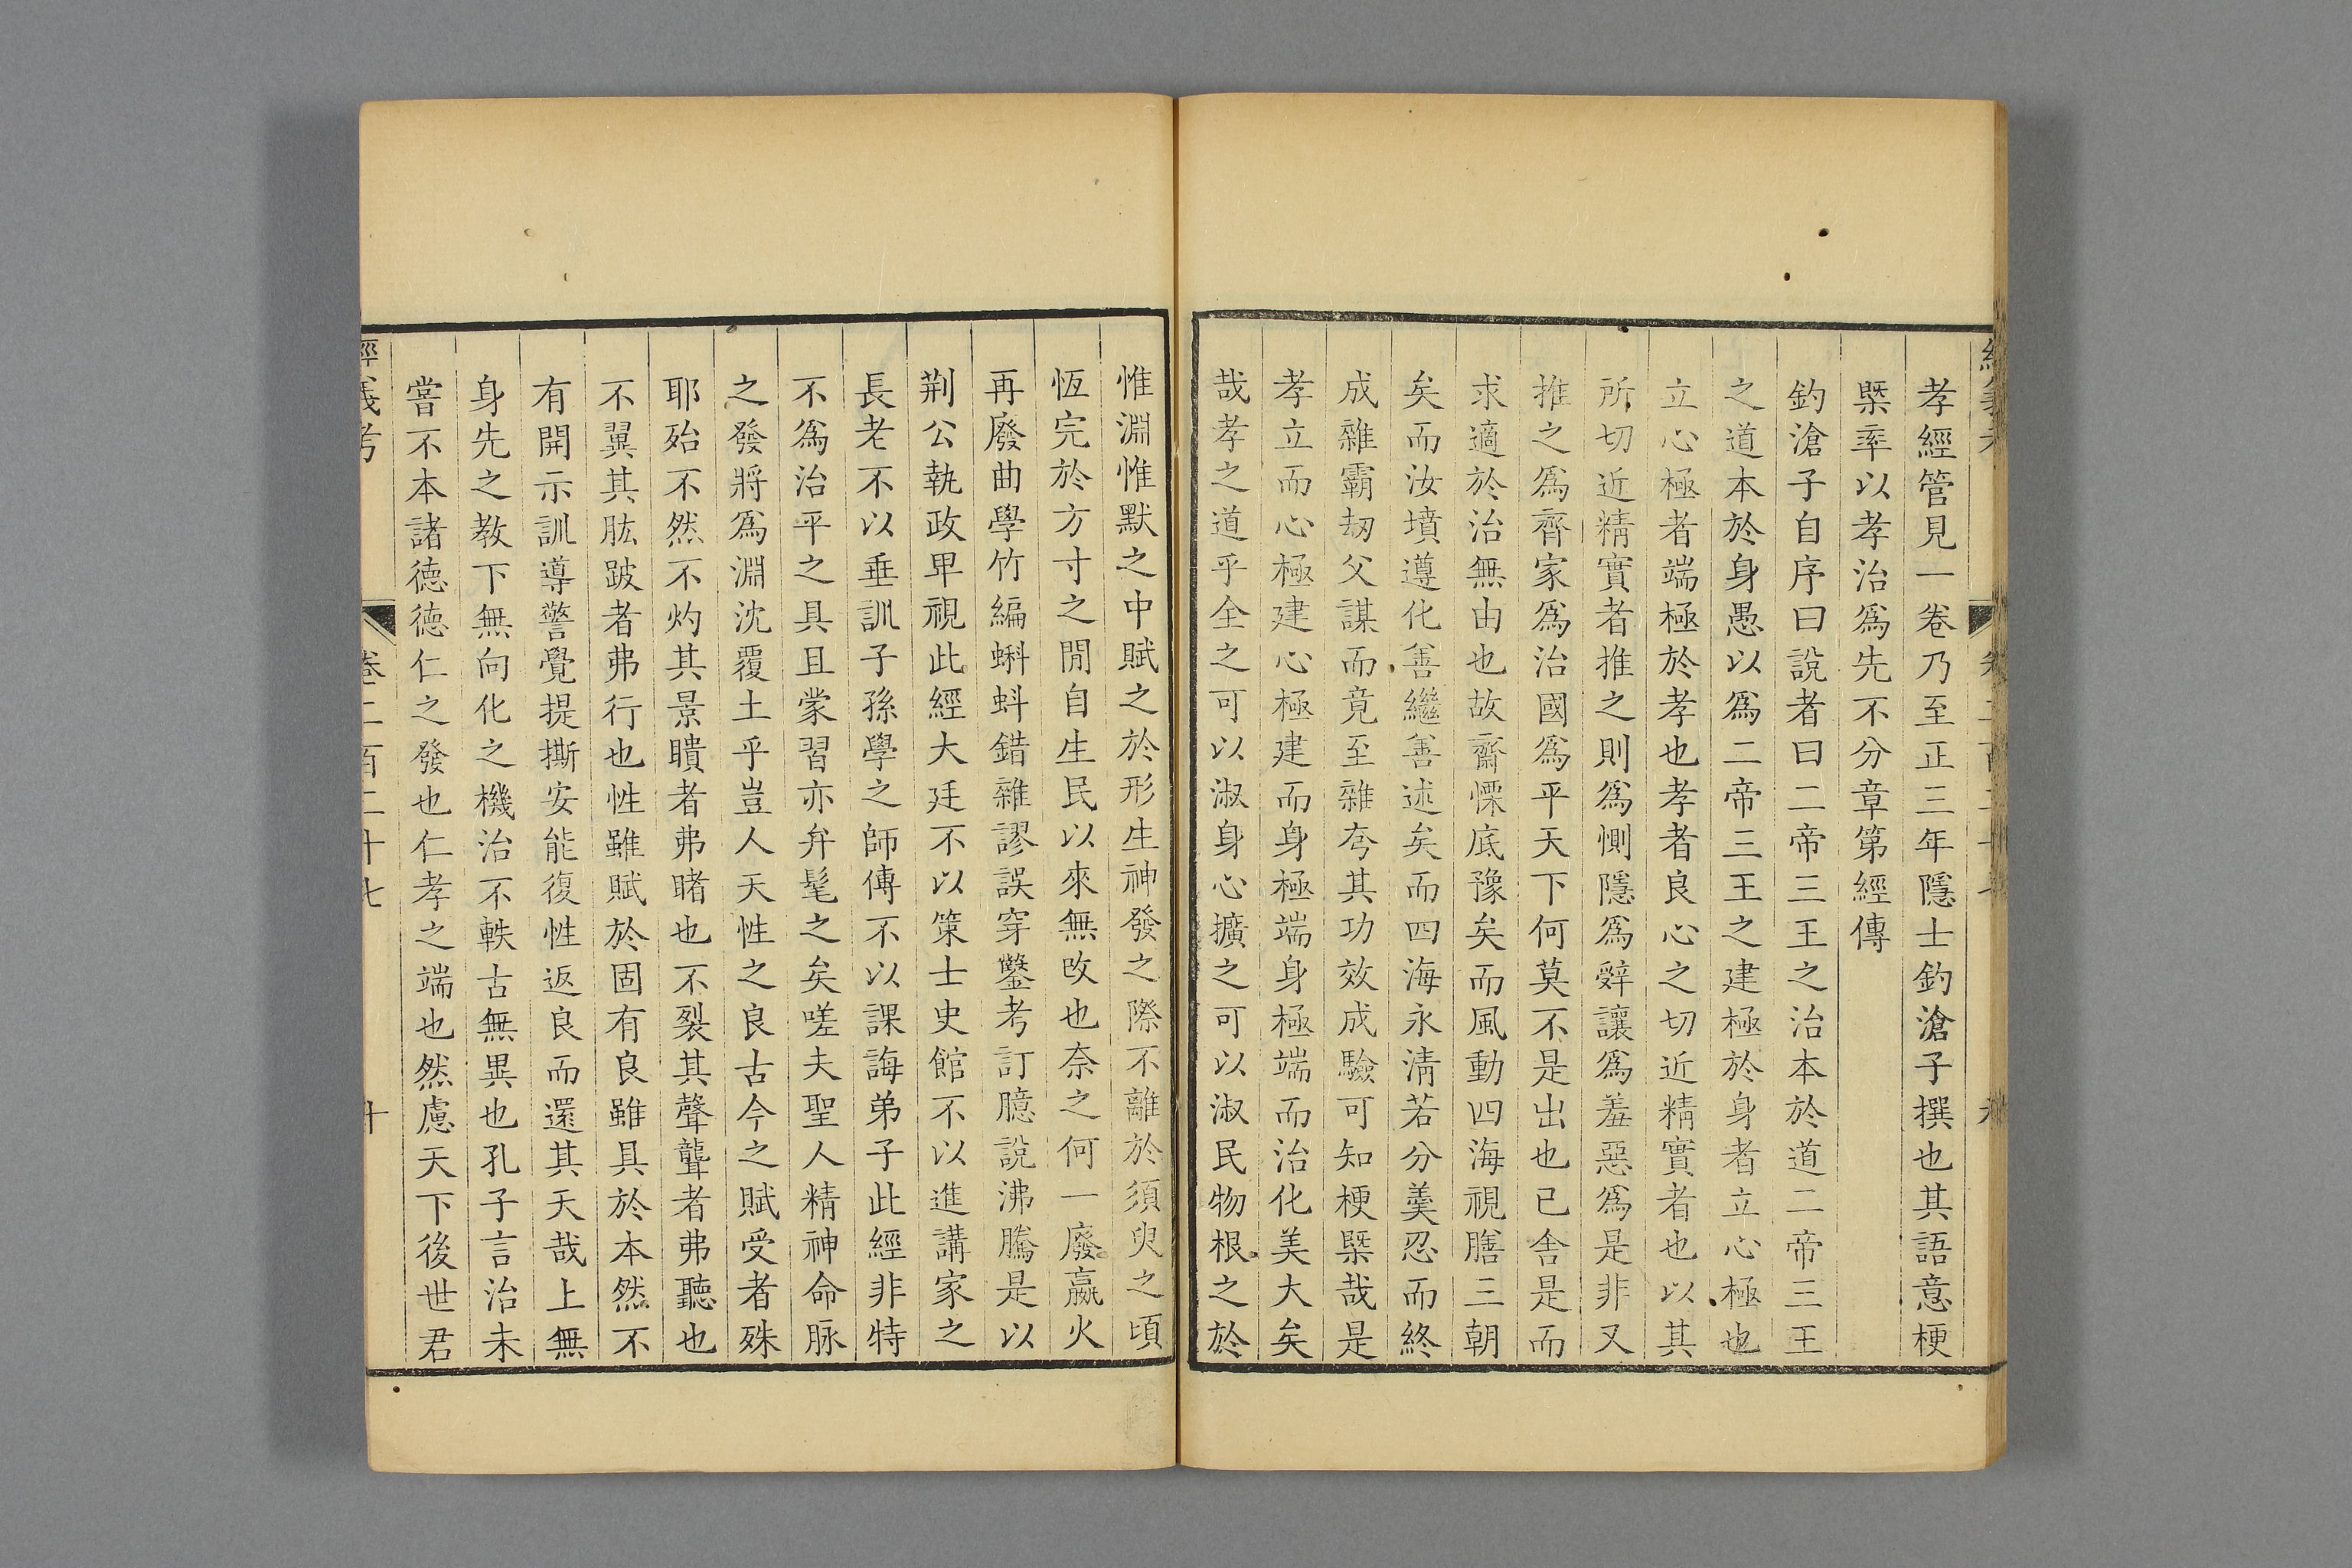 孝經管見一卷乃至正三年隱士釣滄子撰也其語意梗
槩率以孝治爲先不分章第經傳
釣滄子自序曰說者曰二帝三王之治本於道二帝三王
之道本於身愚以爲二帝三王之建極於身者立心極也
立心極者端極於孝也孝者良心之切近精實者也以其
所切近精實者推之則爲惻隱爲辭讓爲羞惡爲是非又
推之爲齊家爲治國爲平天下何莫不是出也已舍是而
求適於治無由也故齋慄底豫矣而風動四海視膳三朝
矣而汝墳遵化善繼善述矣而四海永淸若分羹忍而終
成雜霸刼父謀而竟至雜夸其功效成驗可知梗槩哉是
孝立而心極建心極建而身極端身極端而治化美大矣
哉孝之道乎全之可以淑身心擴之可以淑民物根之於
惟淵惟默之中賦之於形生神發之際不離於須臾之頃
恆完於方寸之閒自生民以來無攺也奈之何一廢嬴火
再廢曲學竹編蝌蚪錯雜謬誤穿鑿考訂臆說沸騰是以
荆公執政卑視此經大廷不以策士史館不以進講家之
長老不以垂訓子孫學之師傳不以課誨弟子此經非特
不爲治平之具且蒙習亦弁髦之矣嗟夫聖人精神命脉
之發將爲淵沈覆土乎豈人天性之良古今之賦受者殊
耶殆不然不灼其景瞶者弗睹也不裂其聲聾者弗聽也
不翼其肱跛者弗行也性雖賦於固有良雖具於本然不
有開示訓導警覺提撕安能復性返良而還其天哉上無
身先之教下無向化之機治不軼古無異也孔子言治未
嘗不本諸德德仁之發也仁孝之端也然慮天下後世君
經義考 卷二百二十七 十